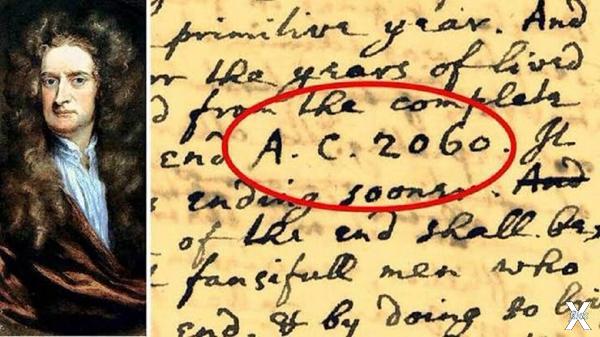 primitive year. And
or the years of lived
d from the complete
end A. C. 2060. It
ending sooner. And
of the end shall be
fansifull men who
end, & by doing so
X